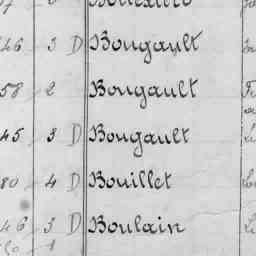 46 3 D Bougault
58 2 Bougault
45 3 D Bougault
80 4 D Bouillet
46 3 D Boulain